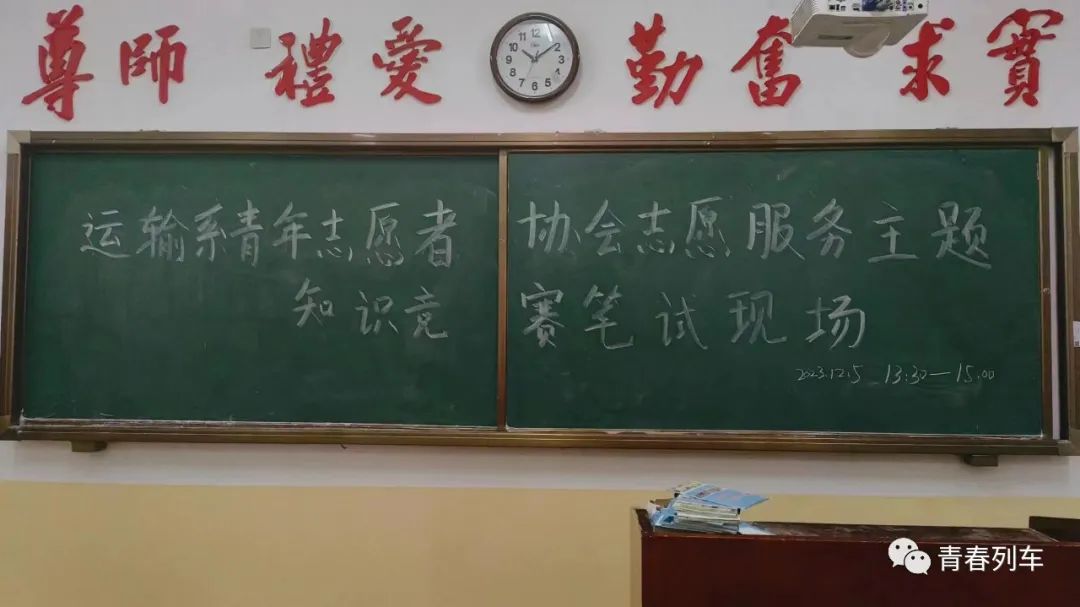 尊師 禮愛 勤奮 求實
运输系青年志愿者协会志愿服务主题
知识竞赛笔试现场
2023.12.5 13:30—15:00
青春列车